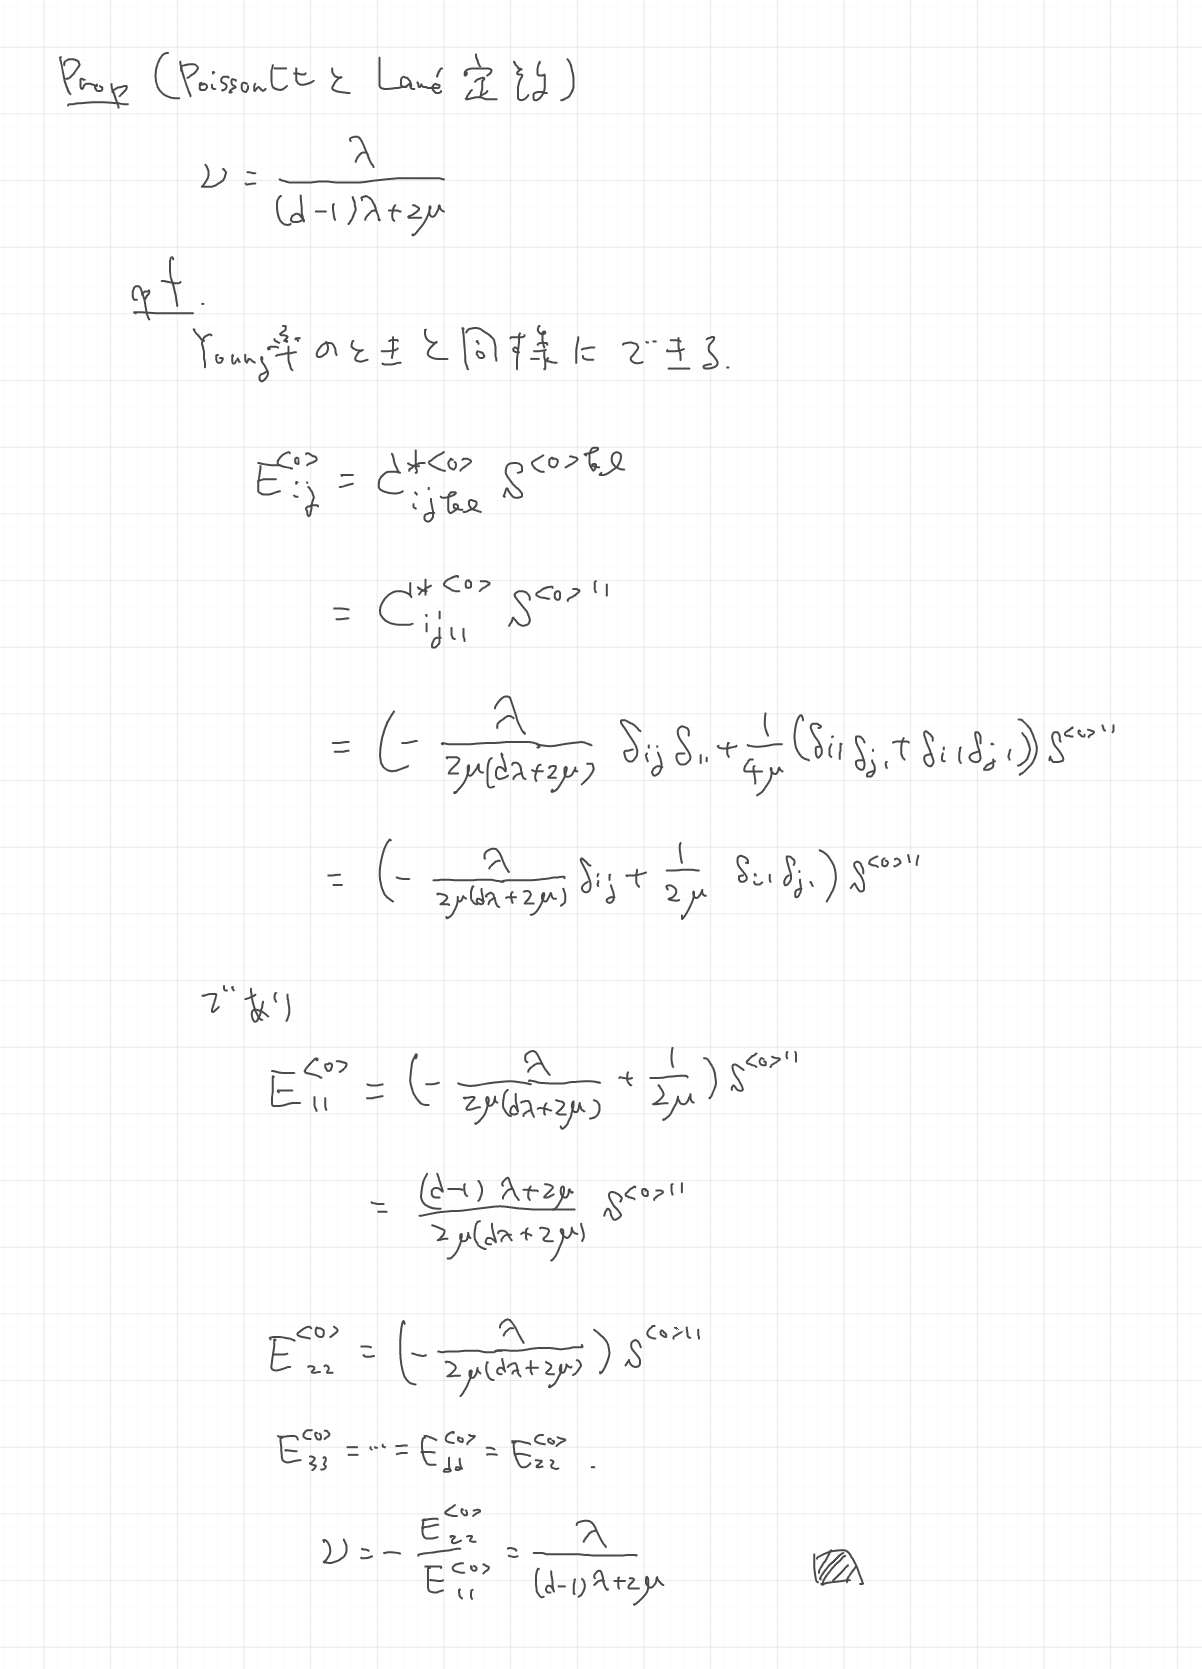 Prop (Poisson比と Lamé 定数)
ν = λ / ((d-1)λ+2μ)
pf.
Young率のときと同様にできる.
E^{<0>}_{ij} = C^{*<0>}_{ijkl} S^{<0>kl}
= C^{*<0>}_{ij11} S^{<0>11}
= (- λ / (2μ(dλ+2μ)) δ_{ij} δ_{11} + 1/(4μ) (δ_{i1} δ_{j1} + δ_{i1} δ_{j1})) S^{<0>11}
= (- λ / (2μ(dλ+2μ)) δ_{ij} + 1/(2μ) δ_{i1} δ_{j1}) S^{<0>11}
であり
E^{<0>}_{11} = (- λ / (2μ(dλ+2μ)) + 1/(2μ)) S^{<0>11}
= ((d-1)λ+2μ) / (2μ(dλ+2μ)) S^{<0>11}
E^{<0>}_{22} = (- λ / (2μ(dλ+2μ))) S^{<0>11}
E^{<0>}_{33} = … = E^{<0>}_{dd} = E^{<0>}_{22} .
ν = - E^{<0>}_{22} / E^{<0>}_{11} = λ / ((d-1)λ+2μ)